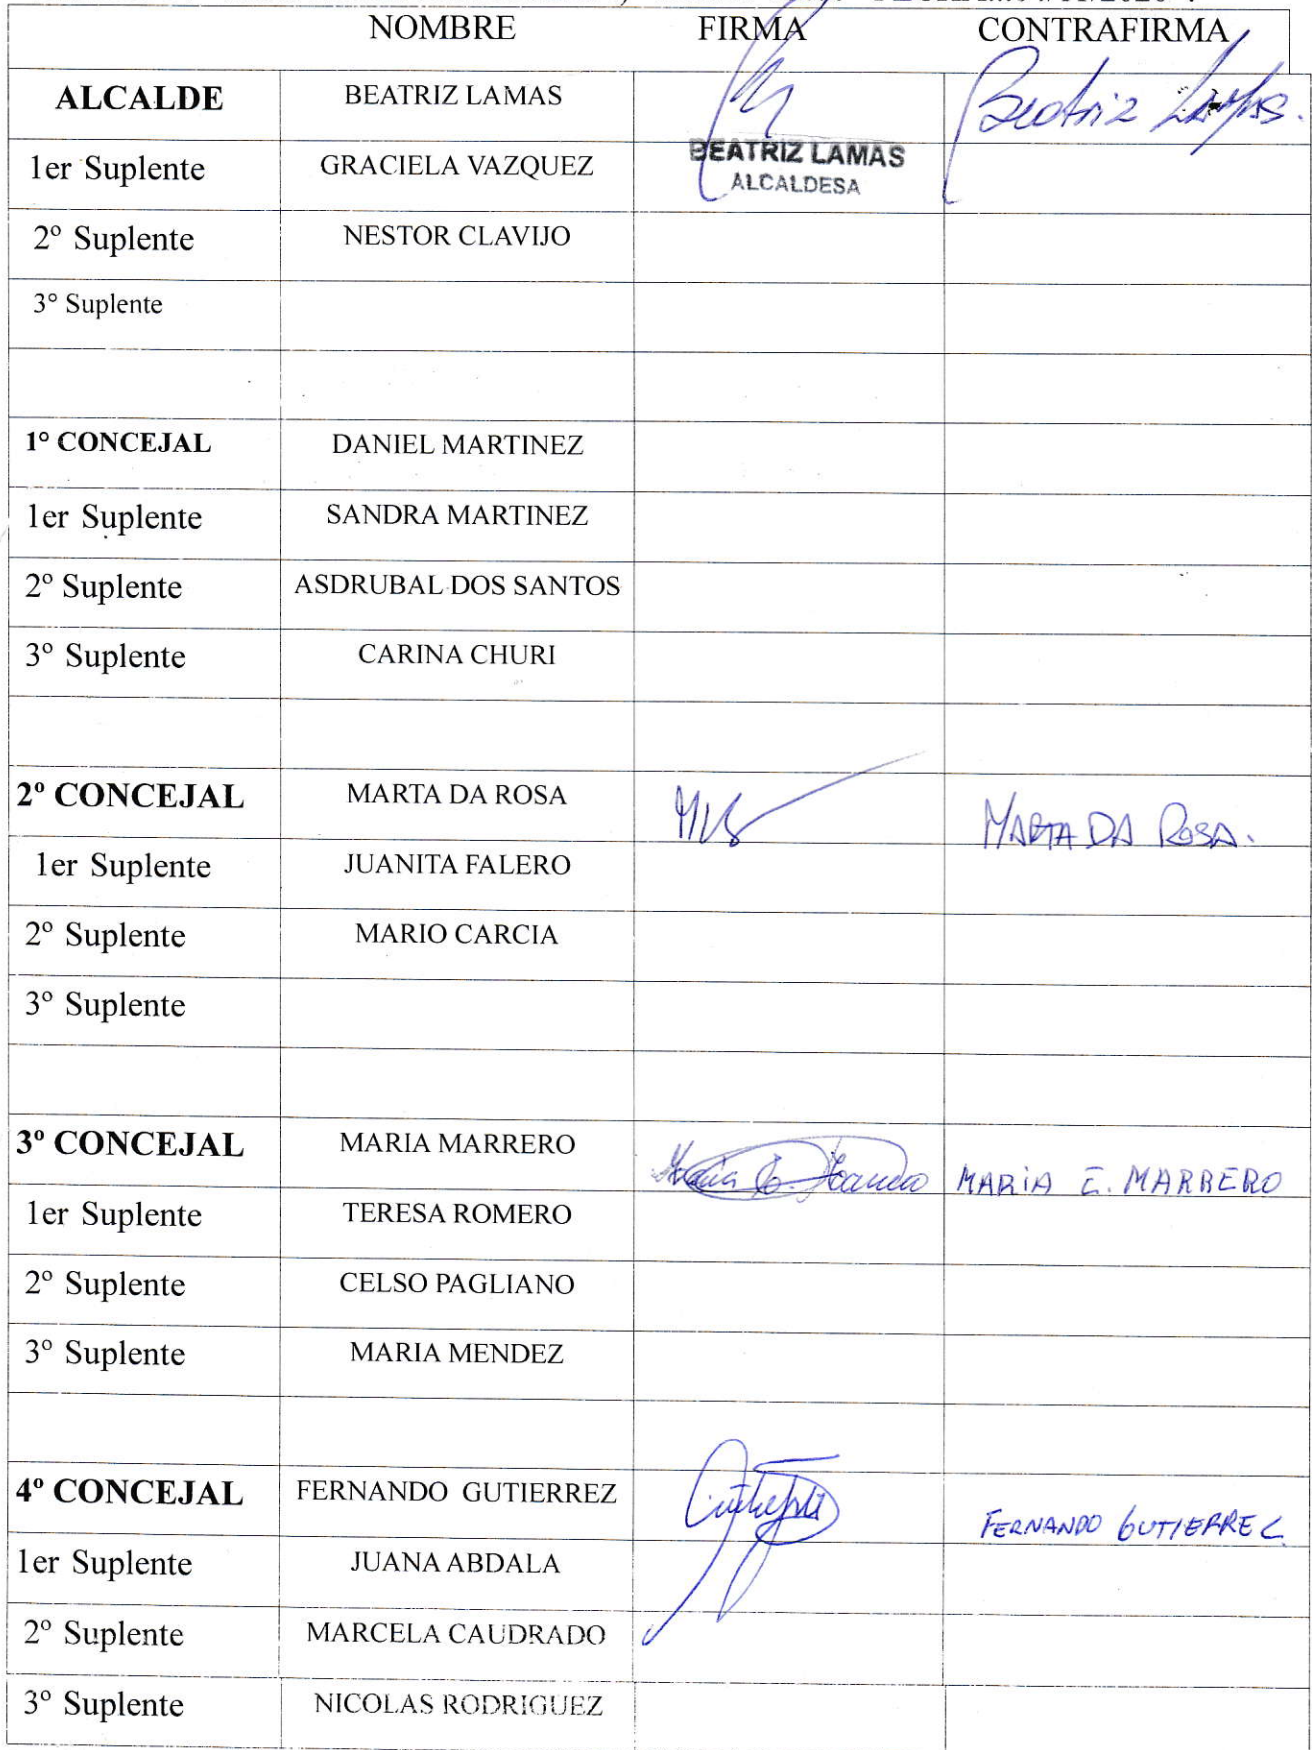 NOMBRE FIRMA CONTRAFIRMA
ALCALDE BEATRIZ LAMAS Beatriz Lamas.
BEATRIZ LAMAS
1er Suplente GRACIELA VAZQUEZ
ALCALDESA
2º Suplente NESTOR CLAVIJO
3° Suplente
1° CONCEJAL DANIEL MARTINEZ
1er Suplente SANDRA MARTINEZ
2º Suplente ASDRUBAL DOS SANTOS
3º Suplente CARINA CHURI
2º CONCEJAL MARTA DA ROSA MARTA DA ROSA.
1er Suplente JUANITA FALERO
2º Suplente MARIO CARCIA
3º Suplente
3º CONCEJAL MARIA MARRERO MARIA E. MARRERO
1er Suplente TERESA ROMERO
2º Suplente CELSO PAGLIANO
3º Suplente MARIA MENDEZ
4º CONCEJAL FERNANDO GUTIERREZ FERNANDO GUTIERREZ
1er Suplente JUANA ABDALA
2º Suplente MARCELA CAUDRADO
3º Suplente NICOLAS RODRIGUEZ